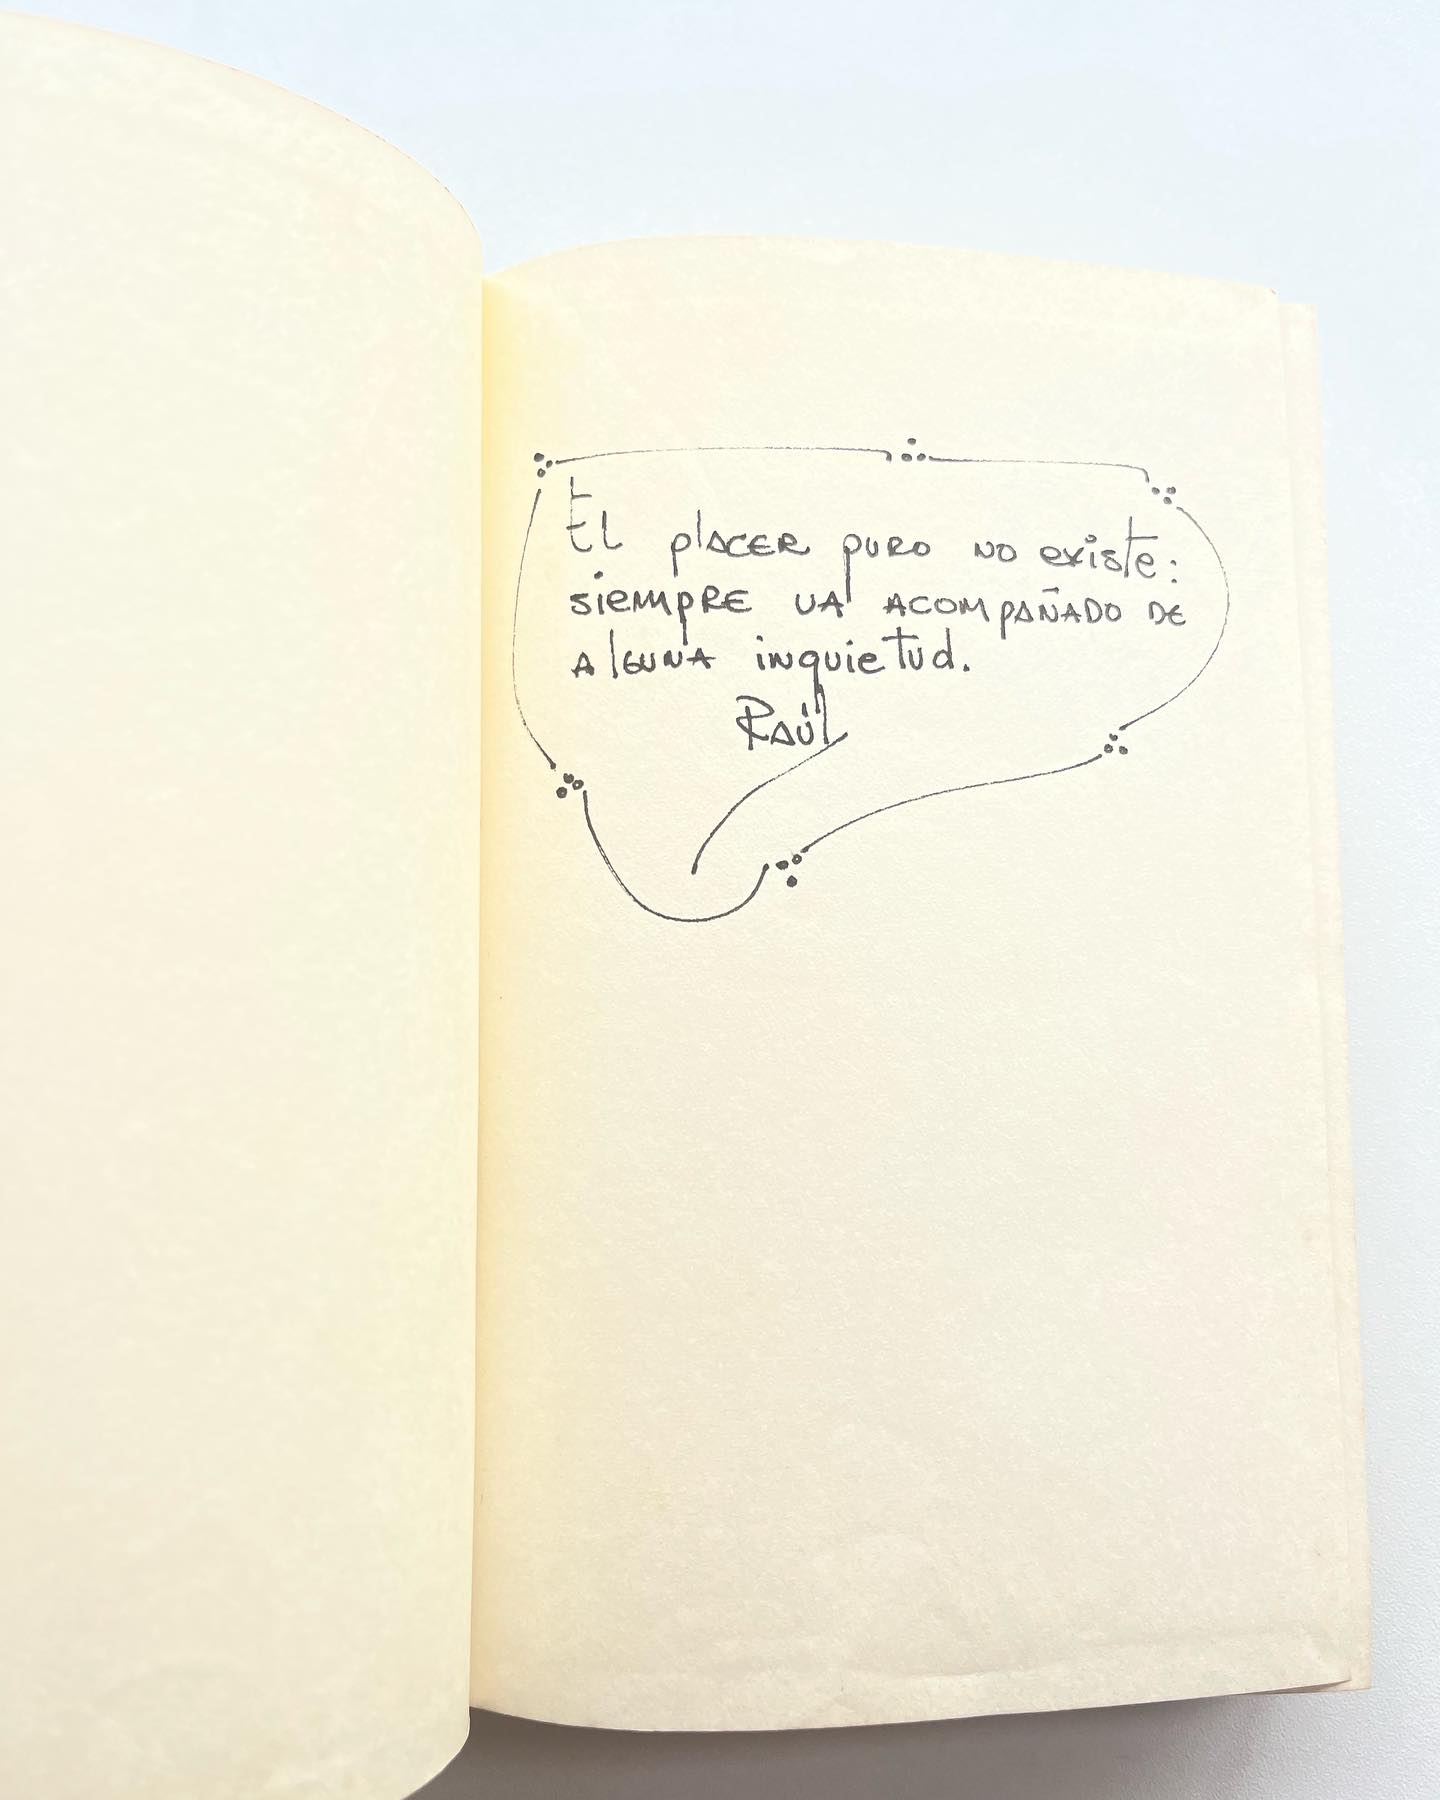 El placer puro no existe:
siempre va acompañado de
alguna inquietud.
Raúl